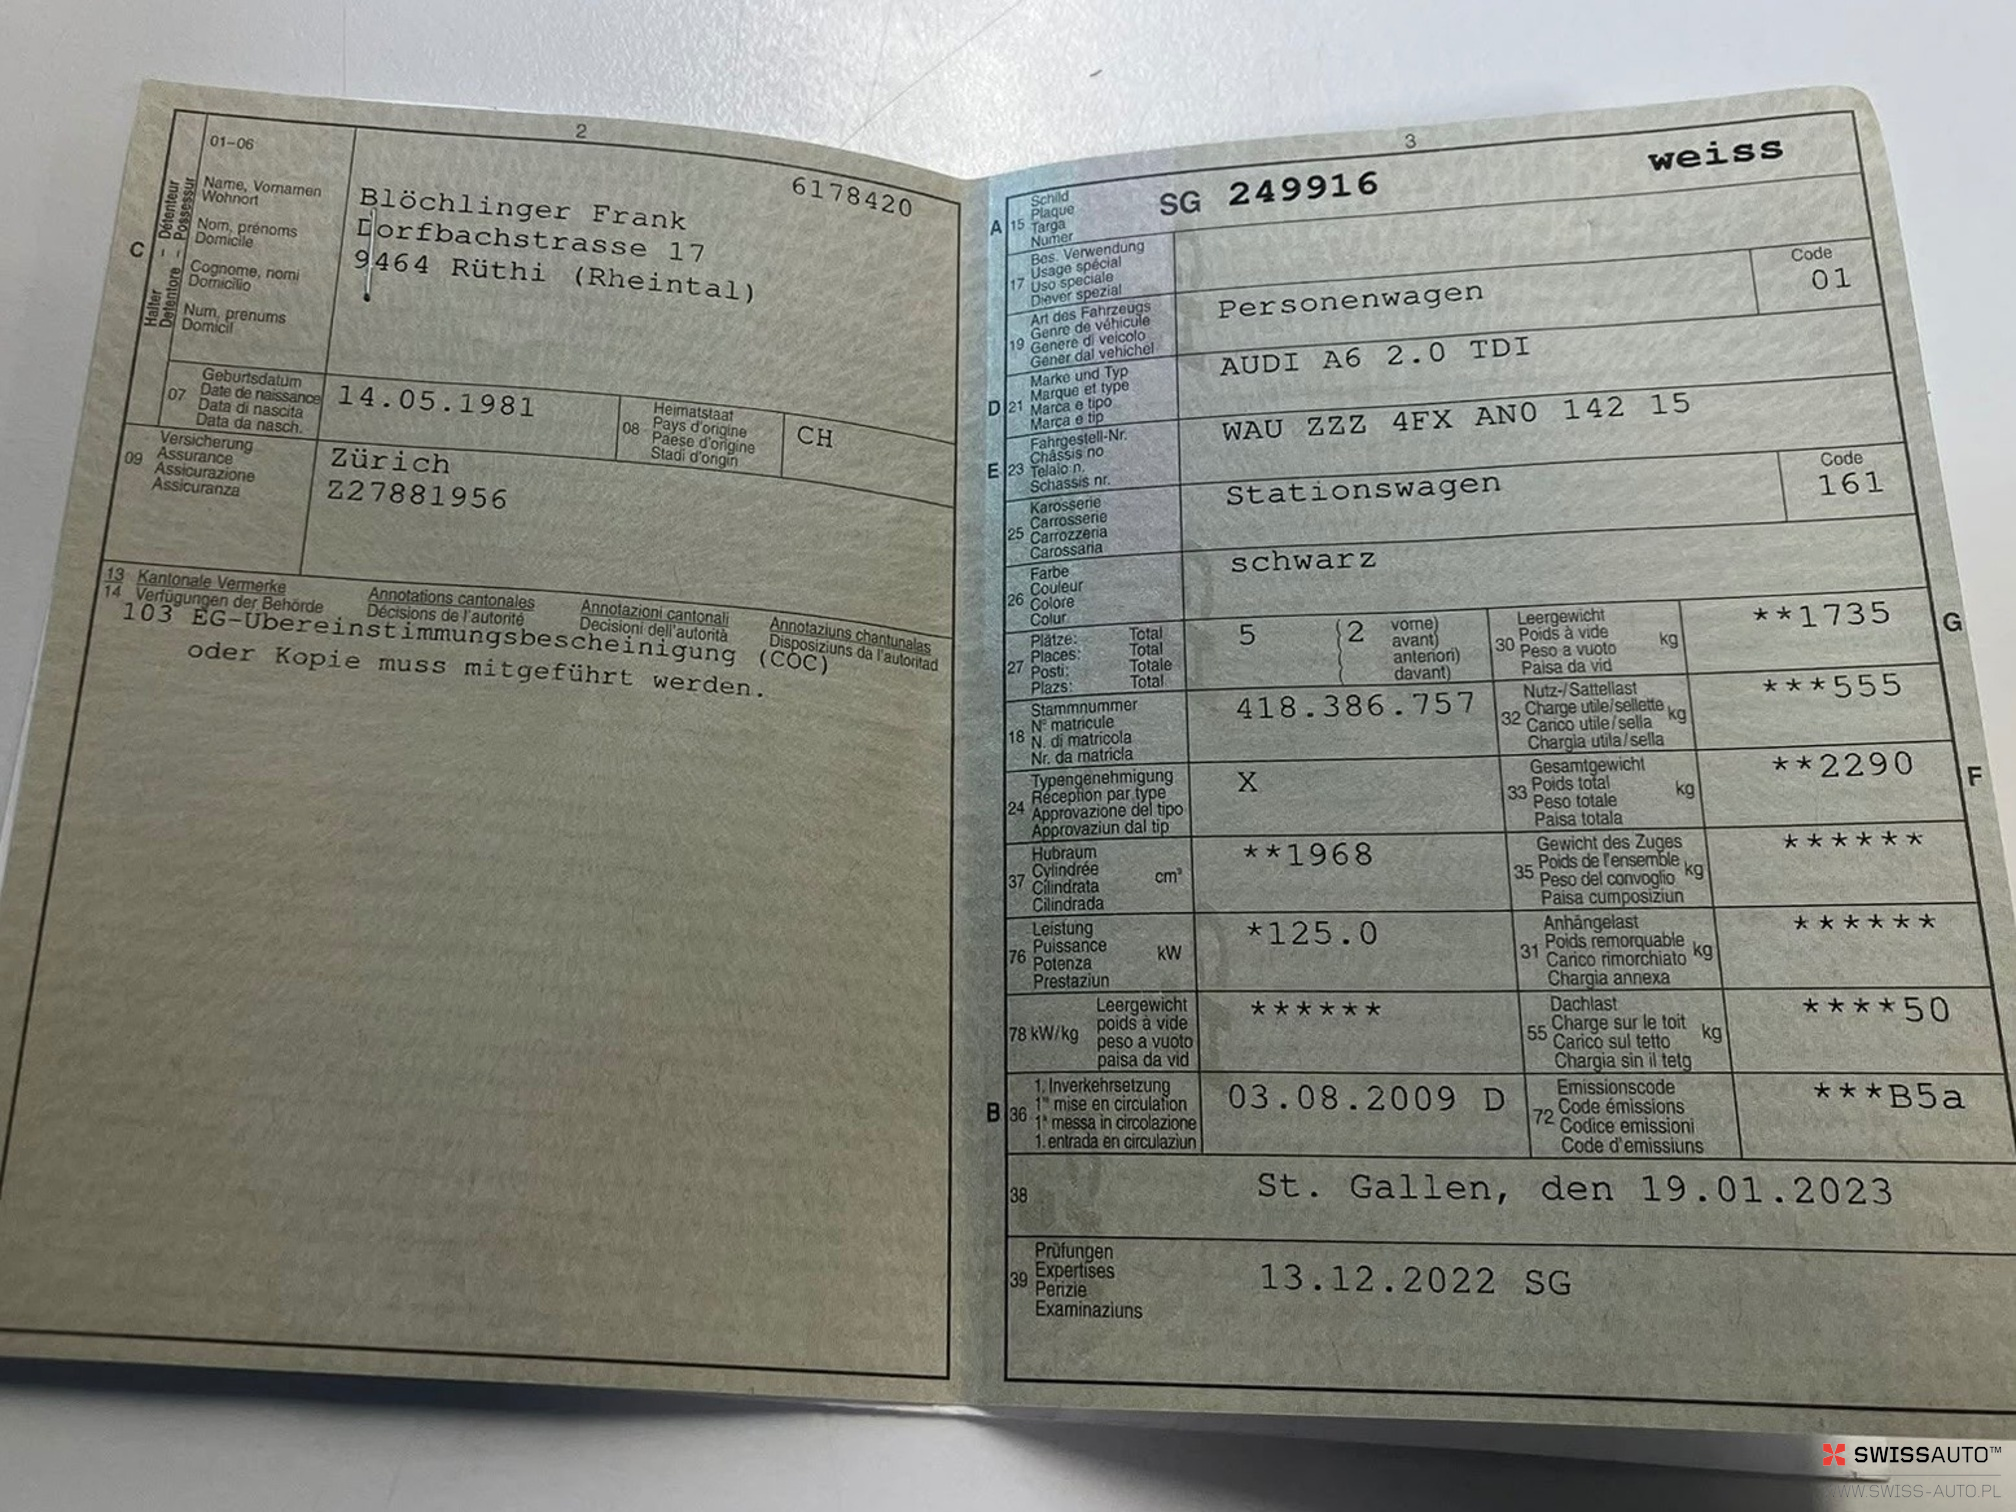 2
01-06
6178420
C
Halter – Détenteur
Detentore – Possessur
Name, Vornamen
Wohnort
Nom, prénoms
Domicile
Cognome, nomi
Domicilio
Num, prenums
Domicil
Blöchlinger Frank
Dorfbachstrasse 17
9464 Rüthi (Rheintal)
07
Geburtsdatum
Date de naissance
Data di nascita
Data da nasch.
14.05.1981
08
Heimatstaat
Pays d'origine
Paese d'origine
Stadi d'origin
CH
09
Versicherung
Assurance
Assicurazione
Assicuranza
Zürich
Z27881956
13 Kantonale Vermerke Annotations cantonales Annotazioni cantonali Annotaziuns chantunalas
14 Verfügungen der Behörde Décisions de l'autorité Decisioni dell'autorità Disposiziuns da l'autoritad
103 EG-Übereinstimmungsbescheinigung (COC)
oder Kopie muss mitgeführt werden.
3
A
15
Schild
Plaque
Targa
Numer
SG 249916 weiss
17
Bes. Verwendung
Usage spécial
Uso speciale
Diever spezial
19
Art des Fahrzeugs
Genre de véhicule
Genere di veicolo
Gener dal vehichel
Personenwagen
Code
01
D
21
Marke und Typ
Marque et type
Marca e tipo
Marca e tip
AUDI A6 2.0 TDI
E
23
Fahrgestell-Nr.
Châssis no
Telaio n.
Schassis nr.
WAU ZZZ 4FX AN0 142 15
25
Karosserie
Carrosserie
Carrozzeria
Carossaria
Stationswagen
Code
161
26
Farbe
Couleur
Colore
Colur
schwarz
27
Plätze: Total
Places: Total
Posti: Totale
Plazs: Total
5 (2
vorne)
avant)
anteriori)
davant)
30
Leergewicht
Poids à vide
Peso a vuoto
Paisa da vid
kg
**1735
G
18
Stammnummer
N° matricule
N. di matricola
Nr. da matricla
418.386.757
32
Nutz-/Sattellast
Charge utile/sellette
Carico utile/sella
Chargia utila/sella
kg
***555
24
Typengenehmigung
Réception par type
Approvazione del tipo
Approvaziun dal tip
X
33
Gesamtgewicht
Poids total
Peso totale
Paisa totala
kg
**2290
F
37
Hubraum
Cylindrée
Cilindrata
Cilindrada
cm³
**1968
35
Gewicht des Zuges
Poids de l'ensemble
Peso del convoglio
Paisa cumposiziun
kg
******
76
Leistung
Puissance
Potenza
Prestaziun
kW
*125.0
31
Anhängelast
Poids remorquable
Carico rimorchiato
Chargia annexa
kg
******
78 kW/kg
Leergewicht
poids à vide
peso a vuoto
paisa da vid
******
55
Dachlast
Charge sur le toit
Carico sul tetto
Chargia sin il tetg
kg
****50
B
36
1. Inverkehrsetzung
1re mise en circulation
1a messa in circolazione
1. entrada en circulaziun
03.08.2009 D
72
Emissionscode
Code émissions
Codice emissioni
Code d'emissiuns
***B5a
38
St. Gallen, den 19.01.2023
39
Prüfungen
Expertises
Perizie
Examinaziuns
13.12.2022 SG
SWISSAUTO™
WWW.SWISS-AUTO.PL